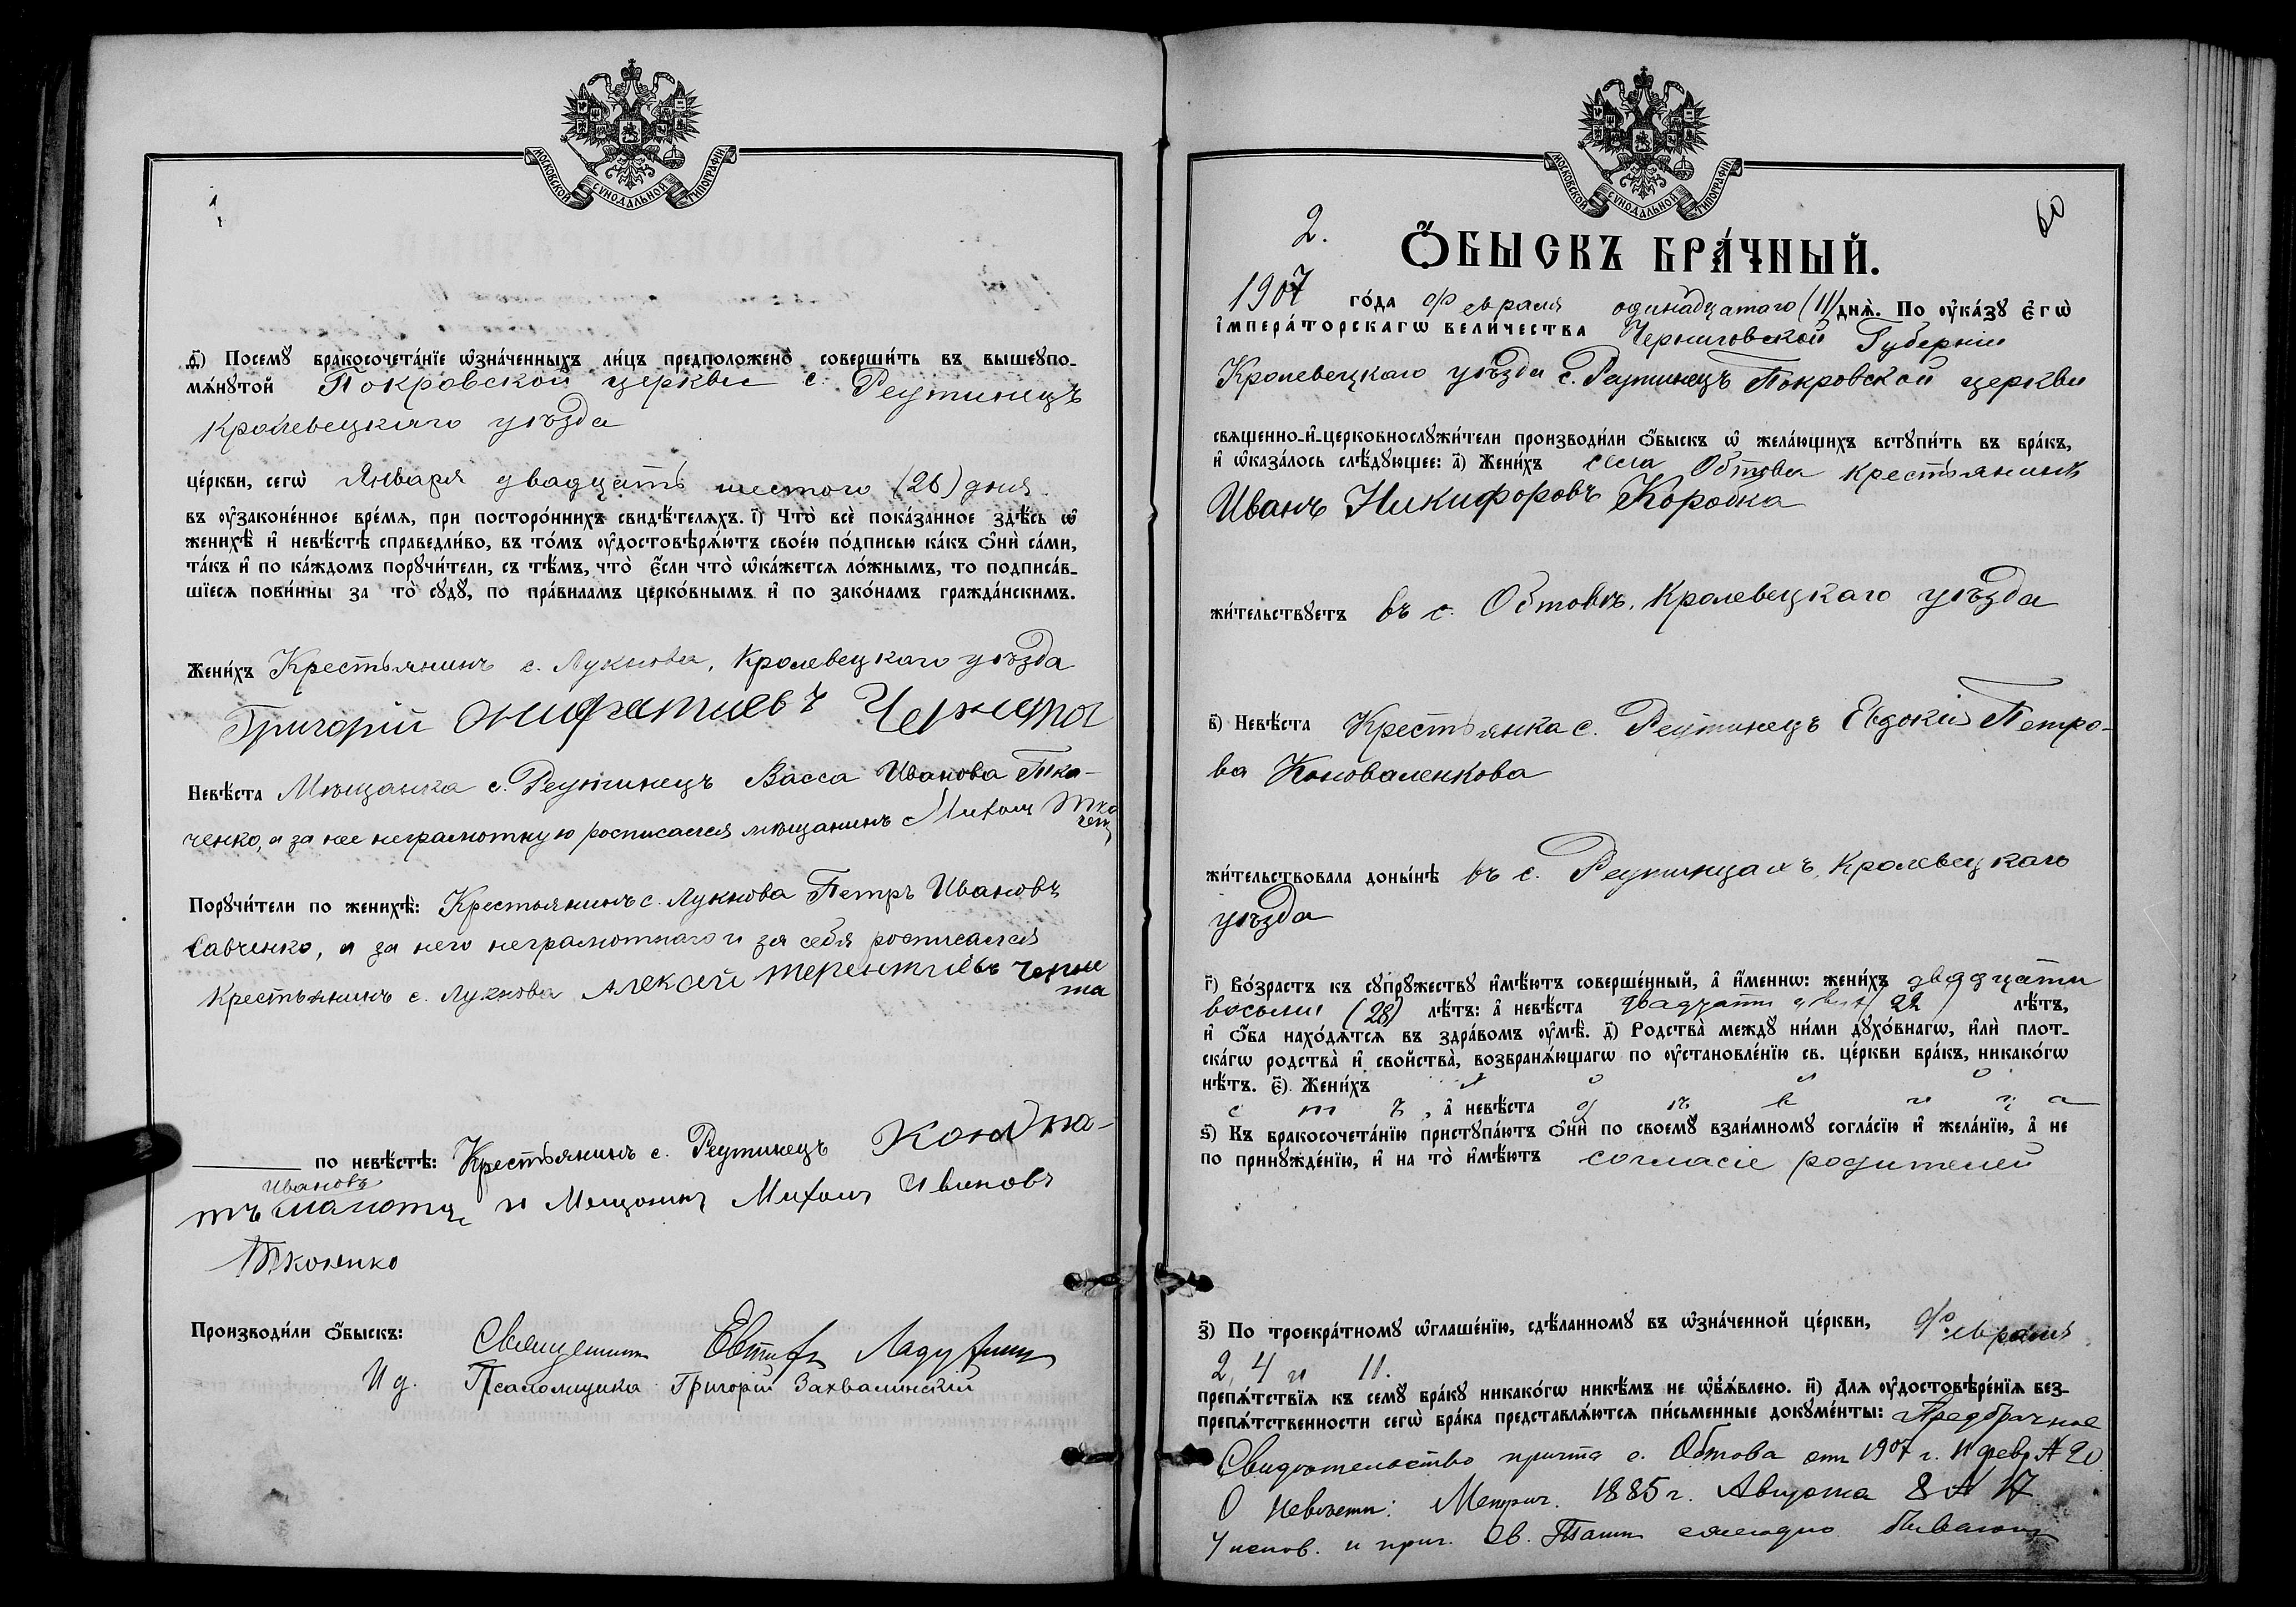 МОСКОВСКОЙ СУНОДАЛЬНОЙ ТИПОГРАФІИ
д҃) Посемꙋ бракосочета́нїе ѡ҆зна́ченныхъ ли́цъ предположено̀ соверши́ть въ вышеупо-
мѧ́нꙋтой Покровской церкви с. Реутинецъ
Кролевецкаго уѣзда
це́ркви, сегѡ̀ Января двадцать шестого (26) дня
въ ᲂу҆законе́нное вре́мѧ, при посторо́ннихъ свидѣ́телѧхъ. і҃) Что̀ всѐ пока́занное здѣ́сь ѡ҆
женихѣ̀ и҆ невѣ́стѣ справедли́во, въ то́мъ ᲂу҆достовѣрѧ́ютъ свое́ю по́дписью ка́къ ѻ҆нѝ са́ми,
та́къ и҆ по ка́ждомъ порꙋчи́тели, съ тѣ́мъ, что̀ є҆́сли что̀ ѡ҆ка́жетсѧ ло́жнымъ, то подписа́в-
шїесѧ пови́нны за то̀ сꙋдꙋ̀, по пра́виламъ церко́внымъ и҆ по зако́намъ гражда́нскимъ.
Жени́хъ Крестьянинъ с. Лукнова, Кролевецкаго уѣзда
Григорій Онифатиевъ Чернета
Невѣ́ста Мѣщанка с. Реутинецъ Васса Иванова Тка-
ченко, а за нее неграмотную росписался мѣщанинъ Михаил Тка
Порꙋчи́тели по женихѣ̀: Крестьянинъ с. Лукнова Петръ Ивановъ
Савченко, а за него неграмотнаго и за себя росписался
Крестьянинъ с. Лукнова Алексей Терентиевъ Черне
та
по невѣ́стѣ: Крестьянинъ с. Реутинецъ Кондра-
Ивановъ
тъ и Мещанинъ Михаил Ивановъ
Ткаченко
Производи́ли ѻ҆́быскъ: Священникъ Евтифій
И д. Псаломщика Григорій Захвалинский
МОСКОВСКОЙ СУНОДАЛЬНОЙ ТИПОГРАФІИ
2.
60
Ѻ҆́БЫСКЪ БРА́ЧНЫЙ.
1907 го́да февраля одинадцатаго (11) днѧ̀. По ᲂу҆ка́зꙋ є҆гѡ̀
і҆мпера́торскагѡ вели́чества Черниговской Губерніи
Кролевецкаго уѣзда с. Реутинецъ Покровской церкви
свѧщенно-и҆-церковнослꙋжи́тели производи́ли ѻ҆́быскъ ѡ҆ жела́ющихъ встꙋпи́ть въ бра́къ,
и҆ ѡ҆каза́лось слѣ́дꙋющее: а҃) Жени́хъ села Обтова крестьянинъ
Иванъ Никифоровъ Коробка
жи́тельствꙋетъ въ с. Обтовѣ, Кролевецкаго уѣзда
в҃) Невѣ́ста Крестьянка с. Реутинецъ Евдокія Петро-
ва Коноваленкова
жи́тельствовала доны́нѣ въ с. Реутинцахъ, Кролевецкаго
уѣзда
г҃) Во́зрастъ къ сꙋпрꙋ́жествꙋ и҆мѣ́ютъ соверше́нный, а҆ и҆́меннѡ: жени́хъ двадцати
восьми (28) лѣ́тъ: а҆ невѣ́ста двадцати двух (22) лѣ́тъ,
и҆ ѻ҆́ба нахо́дѧтсѧ въ здра́вомъ ᲂу҆мѣ̀. д҃) Родства̀ междꙋ̀ ни́ми дꙋхо́внагѡ, и҆лѝ плот-
ска́гѡ родства̀ и҆ свойства̀, возбранѧ́ющагѡ по ᲂу҆становле́нїю св. це́ркви бра́къ, никако́гѡ
нѣ́тъ. є҃) Жени́хъ х о л о
с т ъ, а҆ невѣ́ста д ѣ в и ц а
ѕ҃) Къ бракосочета́нїю пристꙋпа́ютъ ѻ҆нѝ по своемꙋ̀ взаи́мномꙋ согла́сїю и҆ жела́нїю, а҆ не
по принꙋжде́нїю, и҆ на то̀ и҆мѣ́ютъ согласіе родителей
з҃) По троекра́тномꙋ ѡ҆глаше́нїю, сдѣ́ланномꙋ въ ѡ҆зна́ченной це́ркви, февраля
2, 4 и 11.
препѧ́тствїѧ къ семꙋ̀ бра́кꙋ никако́гѡ никѣ́мъ не ѡ҆б̾ѧ́влено. и҃) Длѧ ᲂу҆достовѣре́нїѧ без-
препѧ́тственности сегѡ̀ бра́ка представлѧ́ютсѧ пи́сьменные докꙋме́нты: Предбрачное
Свидѣтельство причта с. Обтова от 1907 г. 11 февр. № 20.
О невѣсте: Метрич. 1885 г. Августа 8 № 17
У испов. и прич. Св. Таин ежегодно бывают